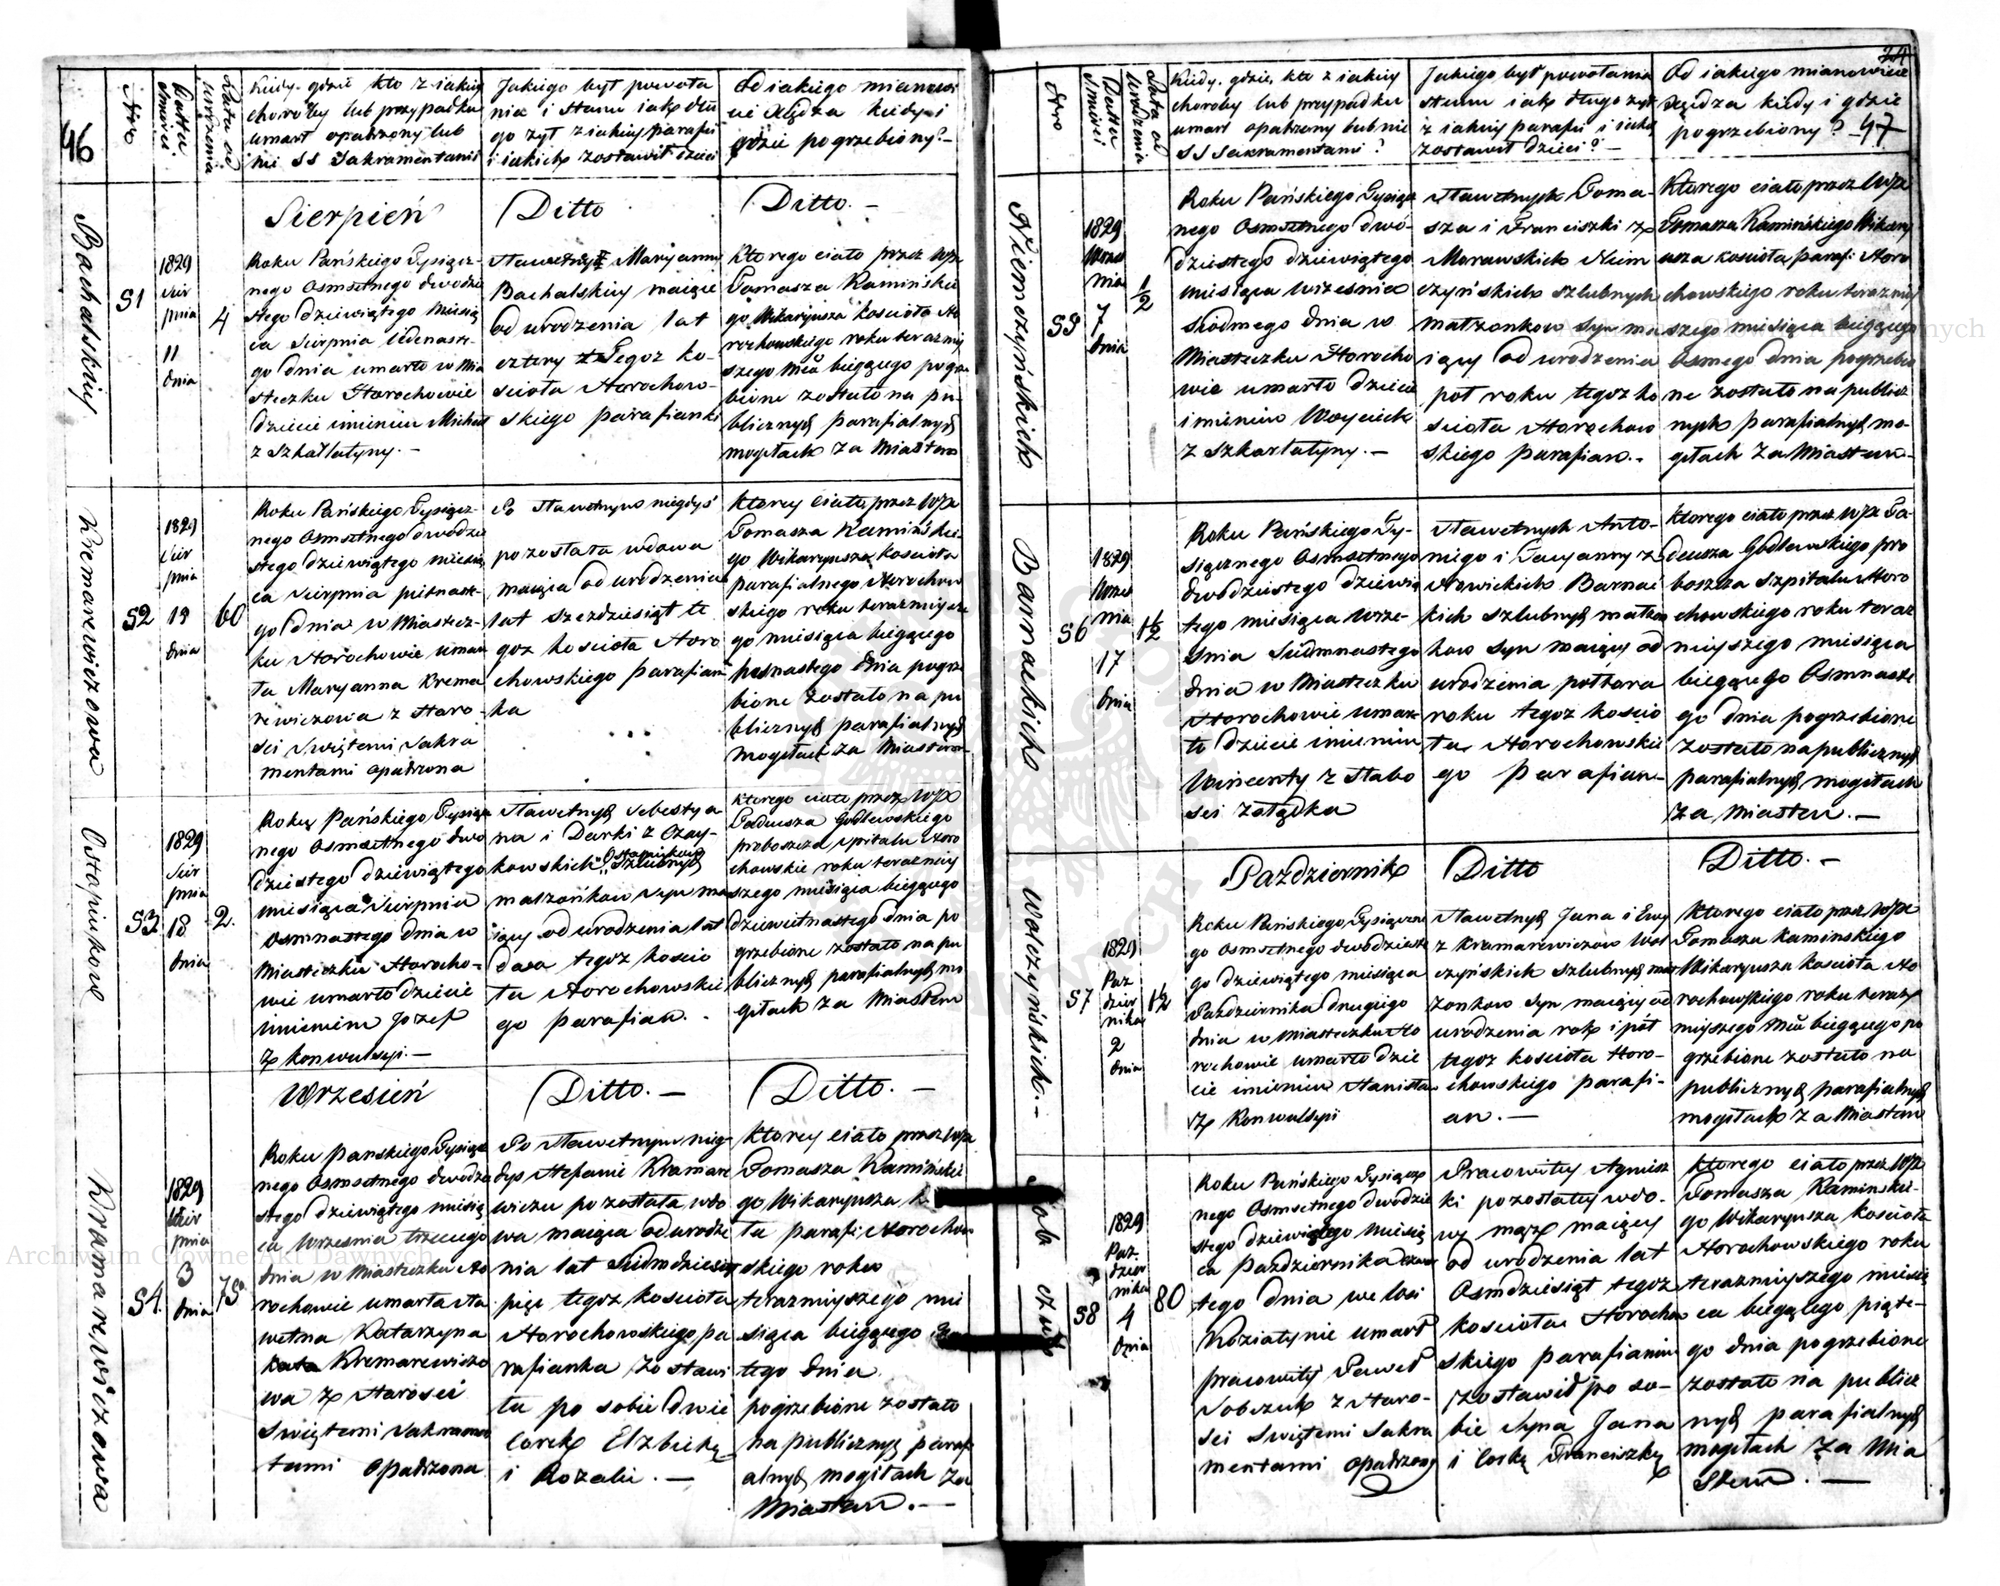 46
Nro
Datta
śmierci
Latta od
urodzenia
Kiedy, gdzie kto z iakiey
choroby lub przypadku
umarł opatrzony lub
nie SS Sakramentami
Jakiego był powoła
nia i stanu iak dłu
go żył z iakiey parafii
i iakich zostawił dzieci
Od iakiego mianowi
cie Xiędza kiedy i
gdzie pogrzebiony?
Sierpień
Ditto
Ditto. —
Bachalskiey
51
1829
Sier
pnia
11
dnia
4
Roku Pańskiego Tysiącz-
nego Osmsetnego dwudzie
stego dziewiątego Miesią
ca Sierpnia Jedenaste-
go dnia umarło w Mia
steczku Horochowie
dziecie imieniem Michał
z szkarlatyny. —
Sławetney Maryanny
Bachalskiey maiące
od urodzenia lat
cztery Tegoż ko-
ścioła Horochow-
skiego parafianki
Którego ciało przez WJX
Tomasza Kamińskie
go Wikaryusza kościoła Ho
rochowskiego roku teraźniey
szego Mca bieżącego pogrze
bione zostało na pu
blicznych parafialnych
mogiłach za Miastem
Kremarewiczowa
52
1829
Sier
pnia
19
dnia
60
Roku Pańskiego Tysiącz-
nego Osmsetnego dwudzie
stego dziewiątego miesią
ca Sierpnia pietnaste-
go dnia w Miastecz-
ku Horochowie umar
ła Maryanna Krema
rewiczowa z Staro-
ści Swiętemi Sakra
mentami opatrzona
Po Sławetnym niegdyś
pozostała wdowa
maiąca od urodzenia
lat szezdziesiąt te
goz kościoła Horo
chowskiego parafian
ka
Ktorey ciało przez WJX
Tomasza Kamińskie
go Wikaryusza kościoła
parafialnego Horochow
skiego roku teraźnieysze
go miesiąca bieżącego
dnia pogrze
bione zostało na pu
blicznych parafialnych
mogiłach za Miastem
Ostapiukow
53
1829
Sier
pnia
18
dnia
2.
Roku Pańskiego Tysiącz
nego Osmsetnego dwu
dziestego dziewiątego
miesiąca Sierpnia
osmnastego dnia w
Miasteczku Horocho-
wie umarło dziecie
imieniem Jozef
z konwulsyi. —
Sławetnych Sebestya
na i Darki z Czay-
kowskich Ostapiukow Szlubnych
małżonkow syn ma
iący od urodzenia lat
dwa tegoz kościo
ła Horochowskie
go parafian. -
którego ciało przez WJX
Tadeusza Godlewskiego
proboszcza Szpitalu Horo
chowskie roku teraźniey
szego miesiąca bieżącego
dziewietnastego dnia po
grzebione zostało na pu
blicznych parafialnych mo
giłach za Miastem
Wrzesień
Ditto. —
Ditto. —
Kramarewiczowa
54.
1829
Sier
pnia
3
dnia
75
Roku Panskiego Tysiącz
nego Osmsetnego dwudzie
stego dziewiątego miesią
ca Września trzeciego
dnia w Miasteczku Ho
rochowie umarła Sła
wetna Katarzyna
Kremarewiczo
wa z Starości
Swiętemi Sakramen
tami opatrzona
Po Sławetnym nieg
dys Stefanie Kramare
wiczu pozostała wdo
wa maiąca od urodze
nia lat Siedmdziesiąt
pięć tegoz kościoła
Horochowskiego pa
rafianka zostawi
ła po sobie dwie
corek Elzbietę
i Rozalie. —
Ktorey ciało przez WJX
Tomasza Kamińskie
go Wikaryusza
ła parafi Horochow
skiego roku
teraźnieyszego mie
siąca bieżącego
tego dnia
pogrzebione zostało
na publicznych parafi
alnych mogiłach za
Miastem. —
24
47
Nro
Datta
śmierci
Latta od
urodzenia
Kiedy, gdzie, kto z iakiey
choroby lub przypadku
umarł opatrzony lub nie
SS Sakramentami?
Jakiego był powołania
stanu iak długo żył
z iakiey parafii i iakie
zostawił dzieci? —
Od iakiego mianowicie
Xiędza kiedy i gdzie
pogrzebiony?
Niemczyńskich
55
1829
Wrze
śnia
7
dnia
1/2
Roku Pańskiego Tysiącz
nego Osmsetnego dwu-
dziestego dziewiątego
miesiąca Wrzesnia
siodmego dnia w
Miasteczku Horocho
wie umarło dziecie
imieniem Woyciech
z szkarlatyny. —
Sławetnych Toma-
sza i Franciszki z
Morawskich Niem
czyńskich szlubnych
małżonkow syn ma
iący od urodzenia
poł roku tegoz ko
ścioła Horochow
skiego parafian. -
Którego ciało przez WJX
Tomasza Kamińskiego Wikary
usza kościoła parafi Horo
chowskiego roku teraźniey
szego miesiąca bieżącego
osmego dnia pogrzebio
ne zostało na publicz
nych parafialnych mo-
giłach za Miastem-
Barnackich
56
1829
Wrze
śnia
17
dnia
1 1/2
Roku Pańskiego Ty-
siącznego Osmsetnego
dwudziestego dziewią
tego miesiąca Wrze-
śnia Siedmnastego
dnia w Miasteczku
Horochowie umar-
ło dziecie imieniem
Wincenty z Słabo
ści żołądka
Sławetnych Anto-
niego i Tacyanny z
Nowickich Barnac
kich szlubnych małżon
kow syn maiący od
urodzenia połtora
roku tegoz kościo
ła Horochowskie
go parafian-
Którego ciało przez WJX Ta-
deusza Godlewskiego pro
boszcza Szpitalu Horo
chowskiego roku teraz
nieyszego miesiąca
bieżącego Osmnaste
go dnia pogrzebione
zostało na publicznych
parafialnych mogiłach
za Miastem. —
Październik
Ditto
Ditto. —
Wołczyńskich. —
57
1829
Paz
dzier
nika
2
dnia
1 1/2
Roku Pańskiego Tysiączne
go Osmsetnego dwudzieste
go dziewiątego miesiąca
Października drugiego
dnia w Miasteczku Ho
rochowie umarło dzie
cie imieniem Stanisław
z Konwulsyi
Sławetnych Jana i Ewy
z Kramarewiczow Woł
czyńskich szlubnych mał
żonkow syn maiący od
urodzenia rok i pół
tegoz kościoła Horo-
chowskiego parafi-
an. —
Którego ciało przez WJX
Tomasza Kamińskiego
Wikaryusza kościoła Ho
rochowskiego roku teraz
nieyszego Mca bieżącego po
grzebione zostało na
publicznych parafialnych
mogiłach za Miastem
58
1829
Paz-
dzier
nika
4
dnia
80
Roku Pańskiego Tysiącz
nego Osmsetnego dwudzie
stego dziewiątego Miesią
ca Października czwar
tego dnia we wsi
Koziatynie umarł
pracowity Paweł
Sobczuk z Staro-
ści Swiętemi Sakra
mentami opatrzony
Pracowitey Agniesz
ki pozostałey wdo-
wy mąż maiący
od urodzenia lat
Osmdziesiąt tegoz
kościoła Horocho
skiego parafianin
zostawił po so-
bie Syna Jana
i Corkę Franciszkę
którego ciało przez WJX
Tomasza Kaminskie-
go Wikaryusza kościoła
Horochowskiego roku
teraznieyszego miesią
ca bieżącego piąte-
go dnia pogrzebione
zostało na publicz
nych parafialnych
mogiłach za Mia
stem. —
Archiwum Główne Akt Dawnych